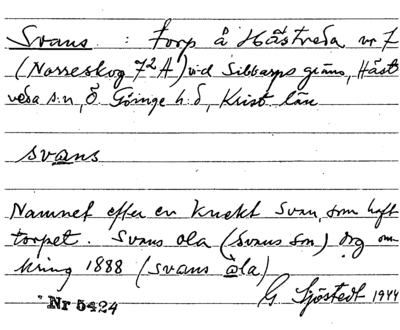 Svans : torp å Hästveda nr 7
(Norreskog 72 A) vid Sibbarps gräns, Häst
veda sn, Ö Göinge hd, Krist. län
svans
Namnet efter en knekt Svan, som haft
torpet. Svans ola (svans son) dog om
kring 1888 (svans åla)
G Sjöstedt 1944
Nr 5424